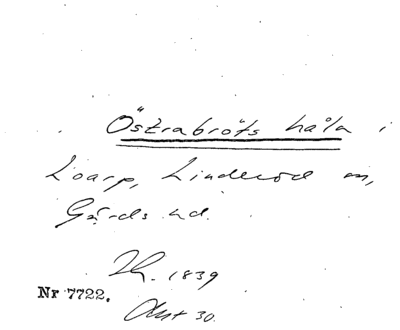 Östrabröts håla i
Loarp, Linderöd sn,
Gärds hd.
1839
Nr 7722.
Akt 30.